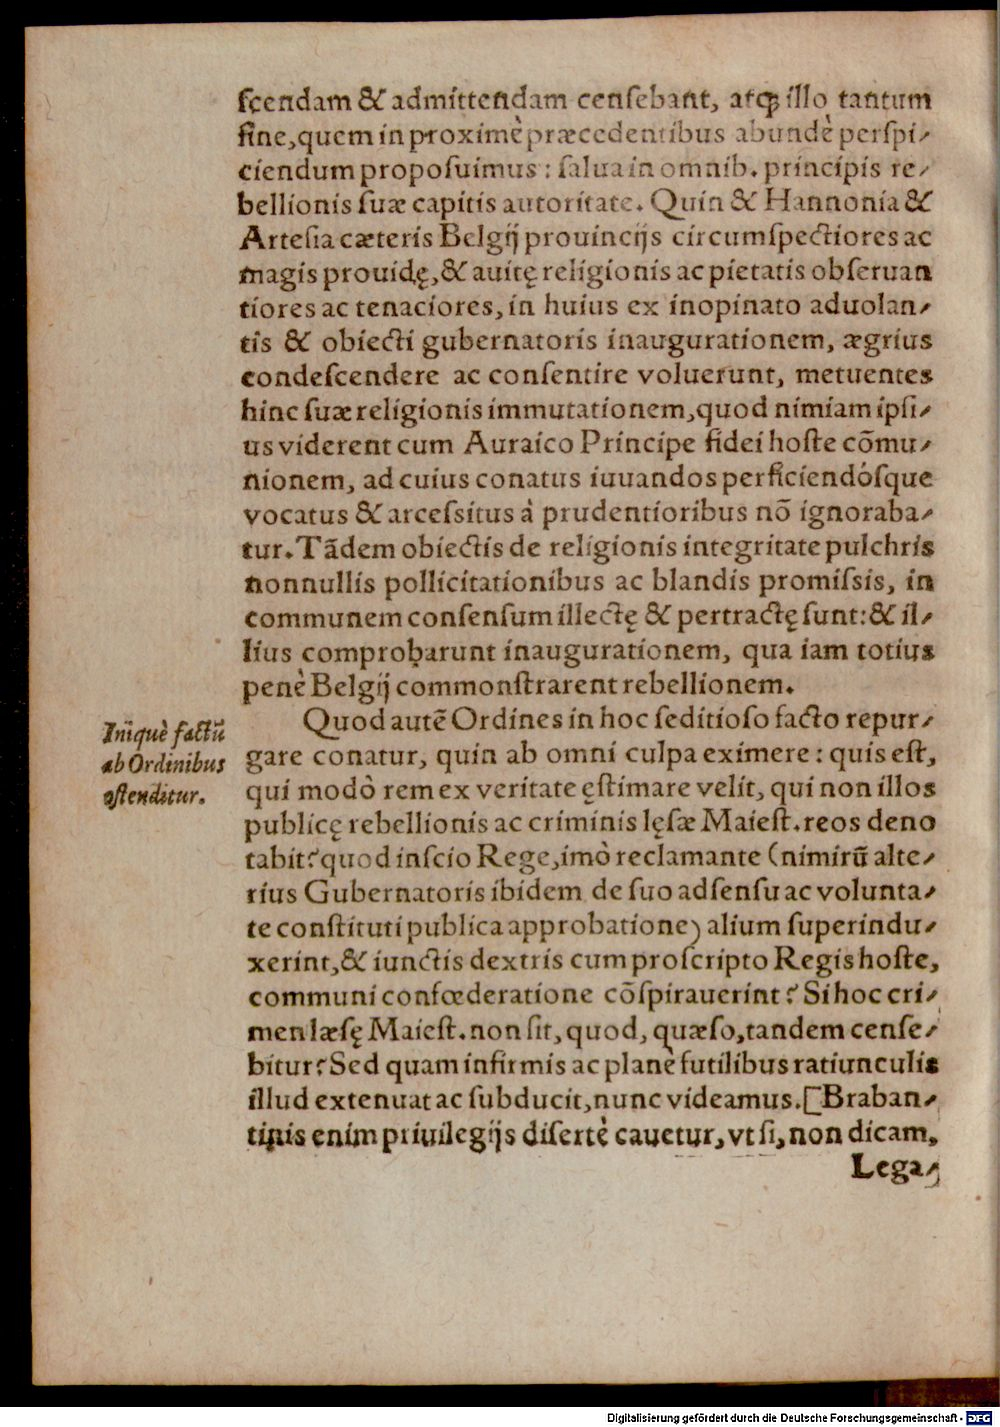 scendam & admittendam censebant, atq; illo tantum
fine, quem in proximè præcedentibus abundè perspi-
ciendum proposuimus: salua in omnib. principis re-
bellionis suæ capitis autoritate. Quin & Hannonia &
Artesia cæteris Belgij prouincijs circumspectiores ac
magis prouidę, & auitę religionis ac pietatis obseruan
tiores ac tenaciores, in huius ex inopinato aduolan-
tis & obiecti gubernatoris inaugurationem, ægrius
condescendere ac consentire voluerunt, metuentes
hinc suæ religionis immutationem, quod nimiam ipsi-
us viderent cum Auraico Principe fidei hoste cõmu-
nionem, ad cuius conatus iuuandos perficiendósque
vocatus & arcessitus à prudentioribus nõ ignoraba-
tur. Tãdem obiectis de religionis integritate pulchris
nonnullis pollicitationibus ac blandis promissis, in
communem consensum illectę & pertractę sunt: & il-
lius comprobarunt inaugurationem, qua iam totius
penè Belgij commonstrarent rebellionem.
Iniquè factũ
ab Ordinibus
ostenditur.
Quod autẽ Ordines in hoc seditioso facto repur-
gare conatur, quin ab omni culpa eximere: quis est,
qui modò rem ex veritate ęstimare velit, qui non illos
publicę rebellionis ac criminis lęsæ Maiest. reos deno
tabit? quod inscio Rege, imò reclamante (nimirũ alte-
rius Gubernatoris ibidem de suo adsensu ac volunta-
te constituti publica approbatione) alium superindu-
xerint, & iunctis dextris cum proscripto Regis hoste,
communi confœderatione cõspirauerint? Si hoc cri-
men læsę Maiest. non sit, quod, quæso, tandem cense-
bitur? Sed quam infirmis ac planè futilibus ratiunculis
illud extenuat ac subducit, nunc videamus. [Braban-
tinis enim priuilegijs disertè cauetur, vt si, non dicam,
Lega-
Digitalisierung gefördert durch die Deutsche Forschungsgemeinschaft - DFG